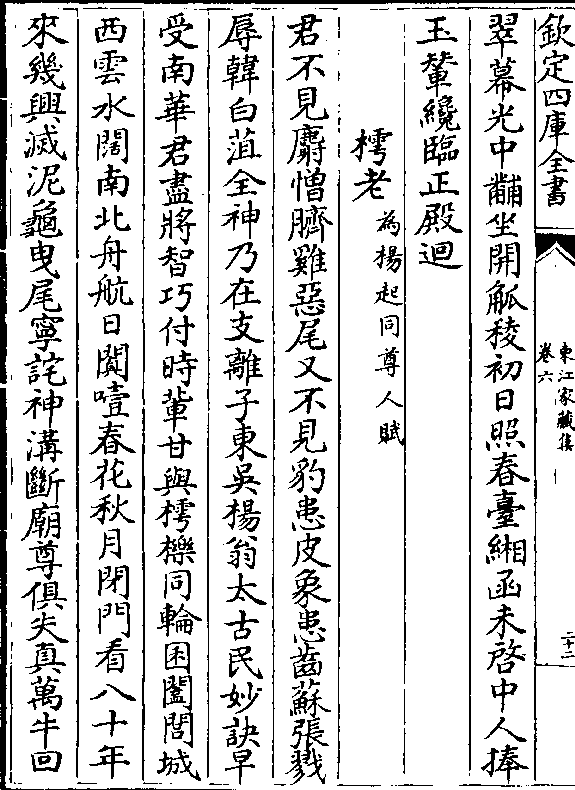 欽定四庫全書
東江家藏集
卷六
二十二
翠幕光中黼坐開觚稜初日照春臺緗函未啓中人捧
玉輦纔臨正殿迴
樗老為楊起同尊人賦
君不見麝憎臍雞惡尾又不見豹患皮象患齒蘇張戮
辱韓白菹全神乃在支離子東吳楊翁太古民妙訣早
受南華君盡將智巧付時輩甘與樗櫟同輪囷闔閭城
西雲水濶南北舟航日闐噎春花秋月閉門看八十年
來幾興滅泥龜曳尾寧詫神溝斷廟尊俱失真萬牛回